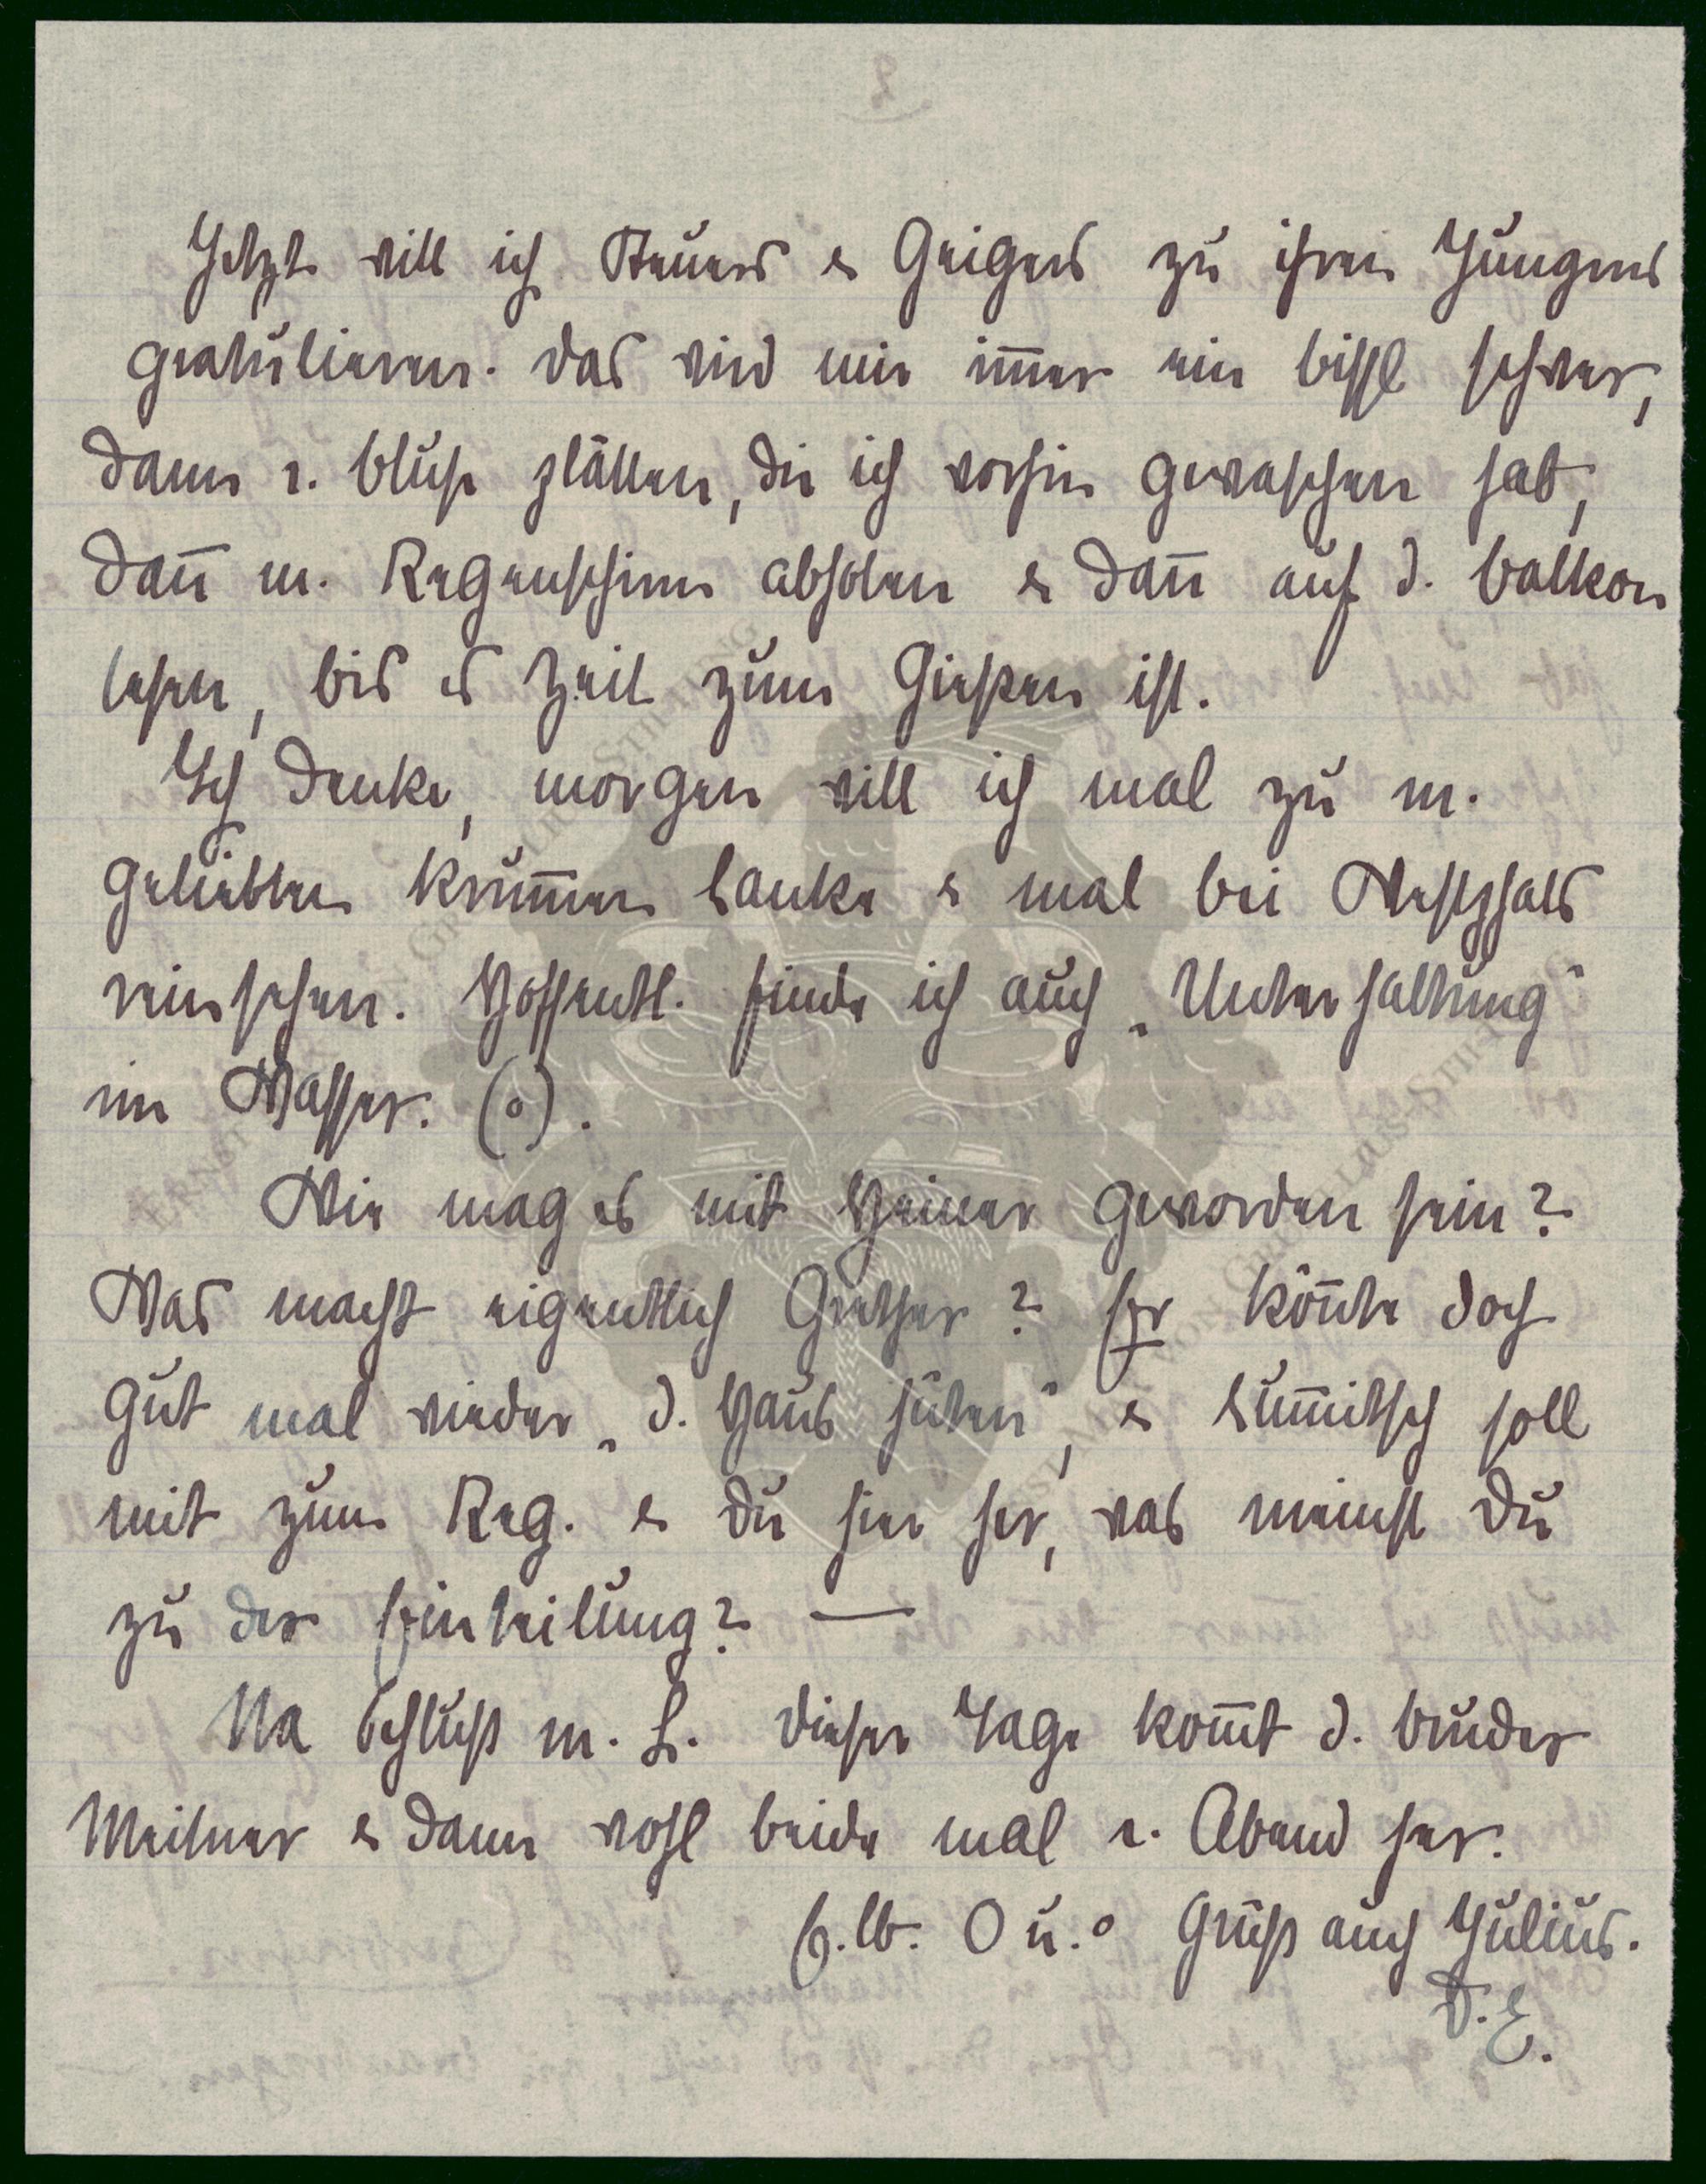 Jetzt will ich Steuers & Geigers zu ihren Jungens
gratulieren. Das wird mir im̄er ein bissl schwer,
dann e. Bluse plätten, die ich vorhin gewaschen hab,
dan̄ m. Regenschirm abholen & dan̄ auf d. Balkon
lesen, bis es Zeit zum Gießen ist.
Ich denke, morgen will ich mal zu m.
geliebten Krum̄en Lanke & mal bei Westphals
reinsehen. Hoffentl. finde ich auch „Unterhaltung"
im Wasser. (o).
Wie mag es mit Heiner geworden sein?
Was macht eigentlich Gunther? Er kön̄te doch
gut mal wieder „d. Haus hüten", & soll
mit zum Reg. & Du hier her, was meinst Du
zu der Einteilung? —
Na Schluß m. L. Dieser Tage kom̄t d. Bruder
Meitner & dann wohl beide mal e. Abend her.
E. lb. O u. o Grüß auch Julius.
D. E.